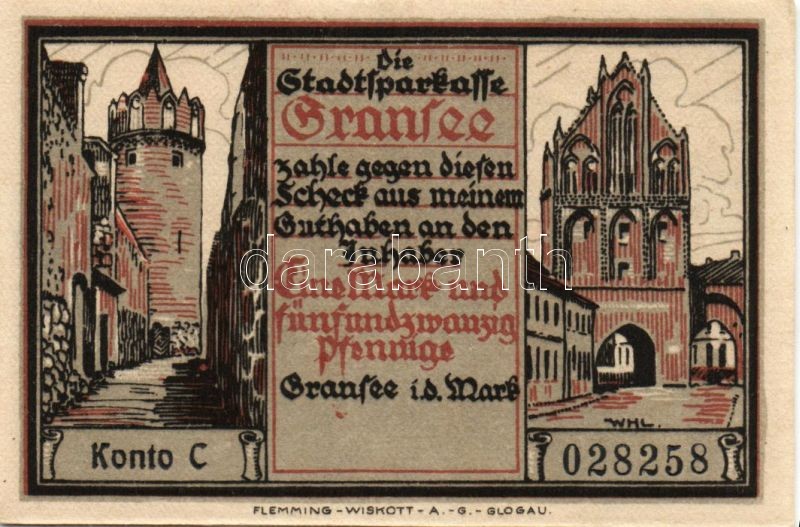 Die
Stadtsparkasse
Gransee
zahle gegen diesen
Scheck aus meinem
Guthaben an den
Inhaber
Eine Mark und
fünfundzwanzig
Pfennige
Gransee i.d. Mark
Konto C
WHL.
028258
FLEMMING-WISKOTT-A.-G.-GLOGAU.
darabanth